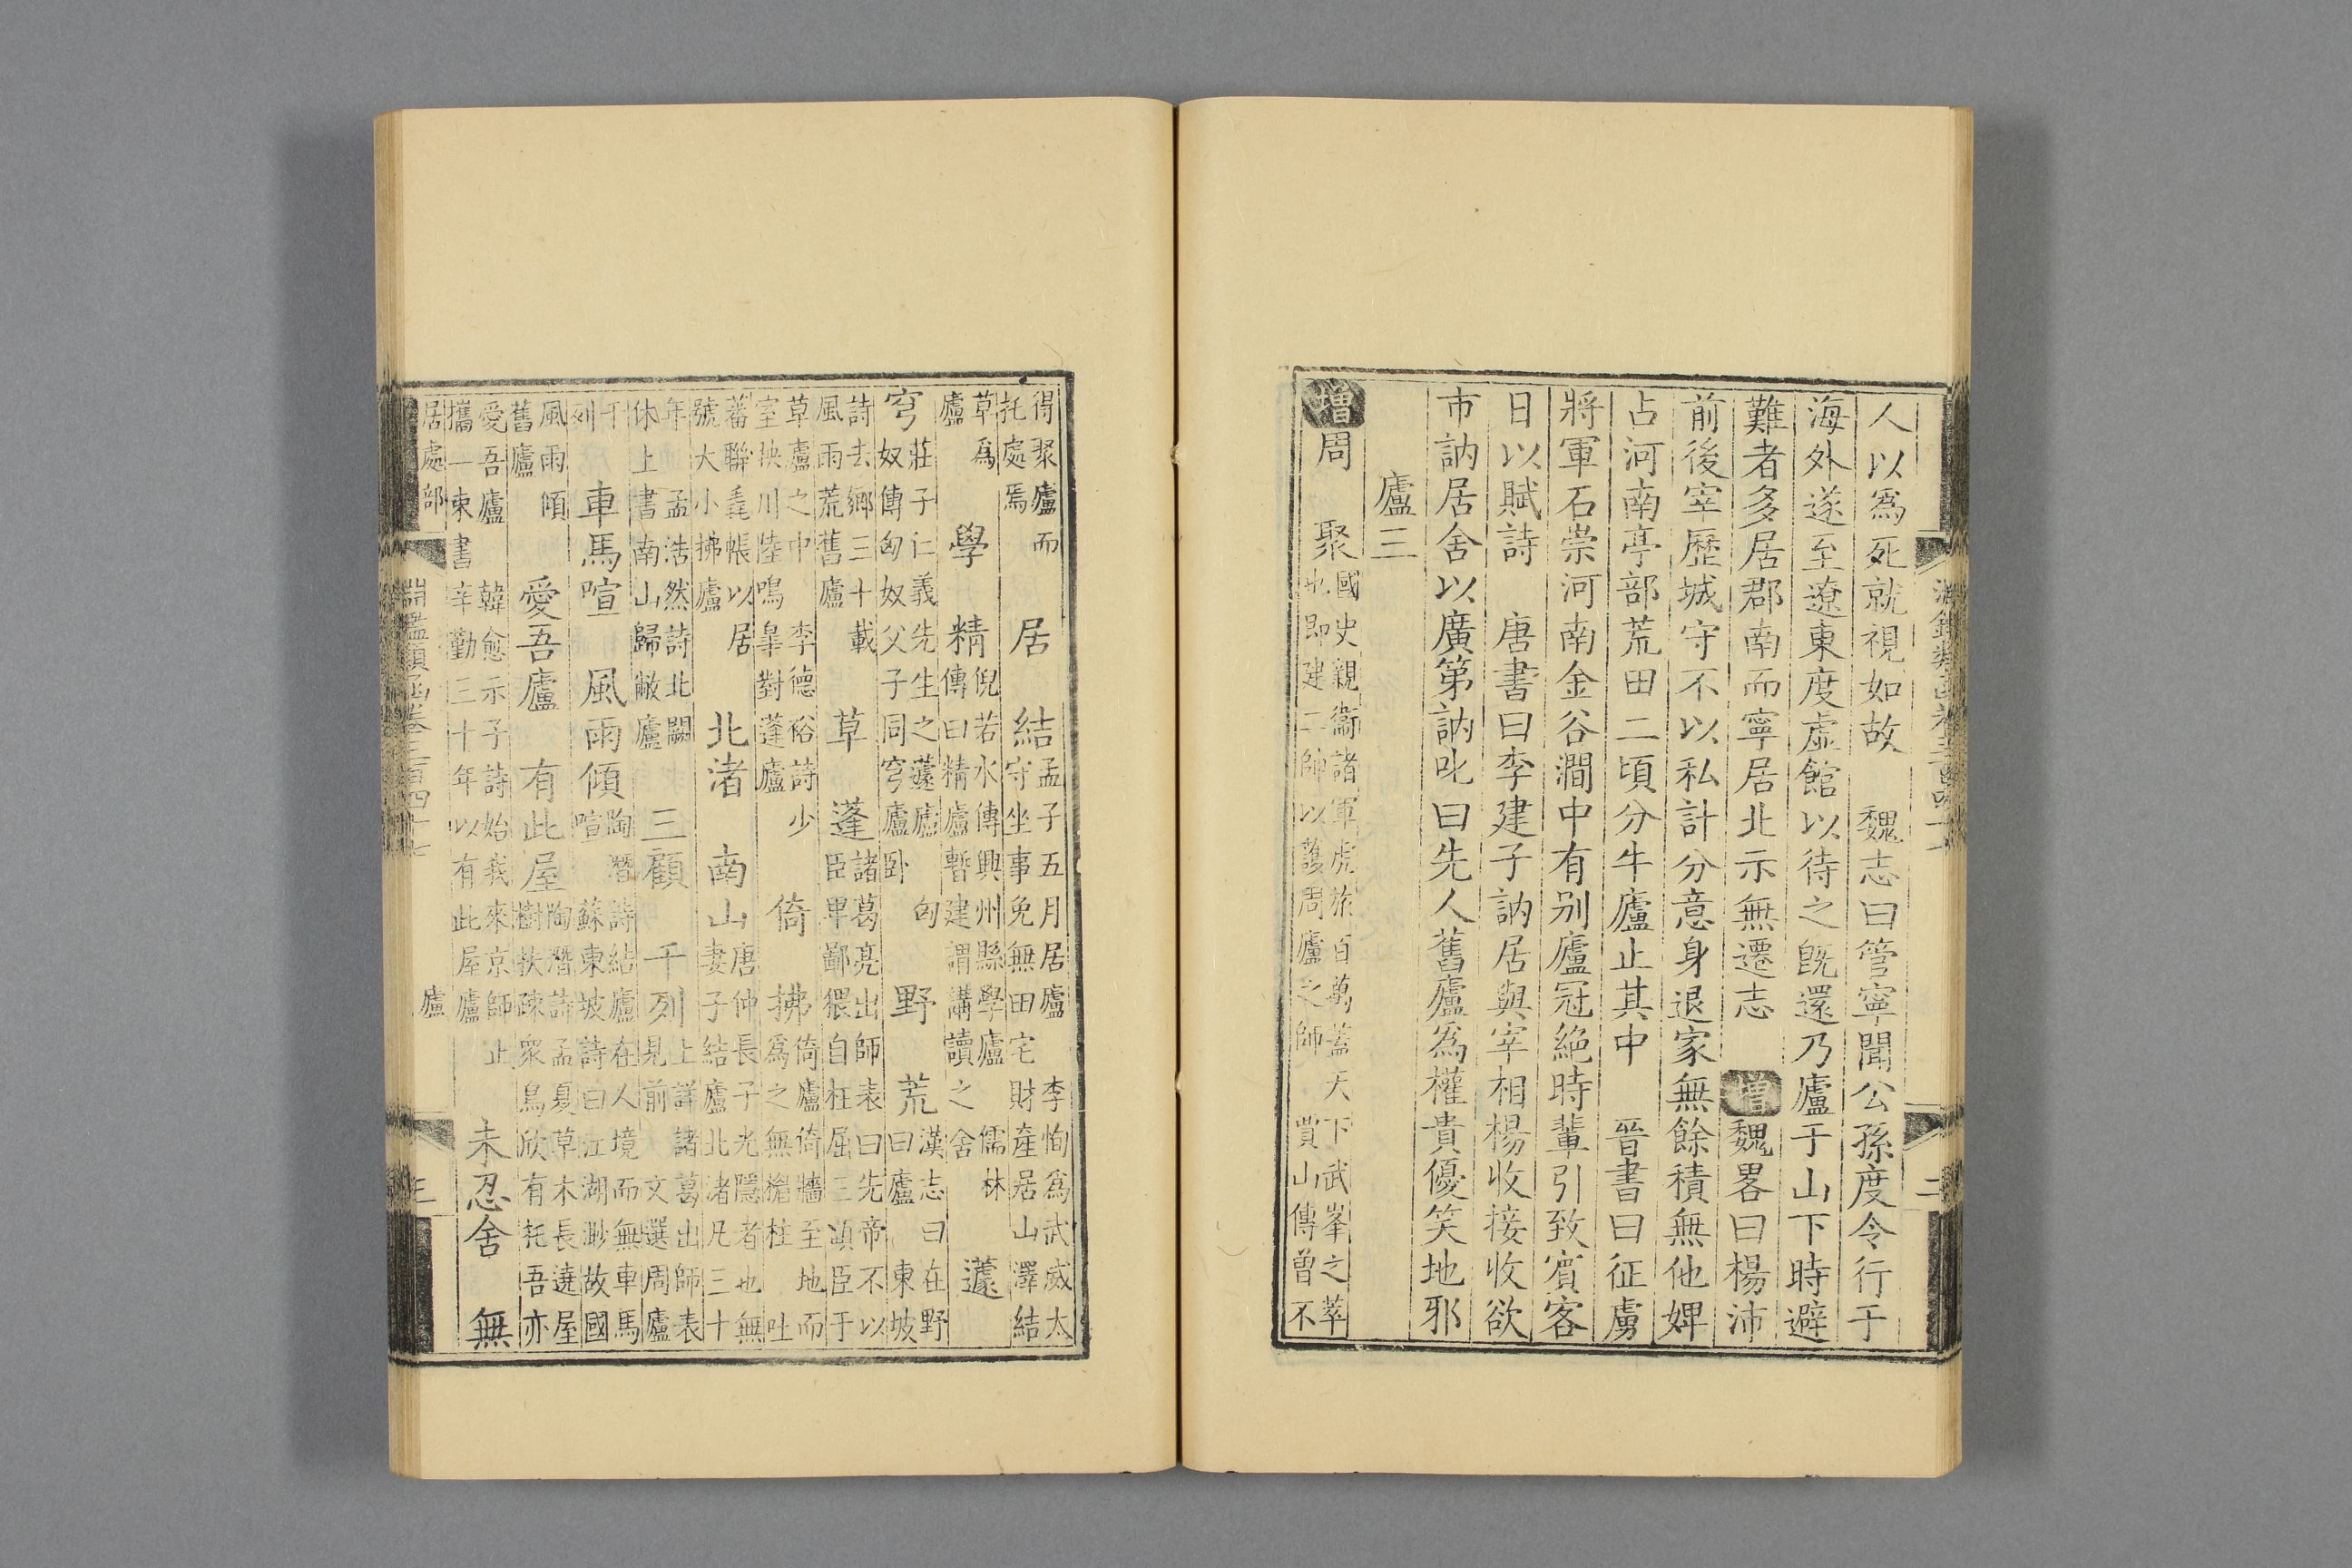 人以爲死就視如故　魏志曰管寧聞公孫度令行于
海外遂至遼東度虛館以待之旣還乃廬于山下時避
難者多居郡南而寧居北示無遷志　增魏畧曰楊沛
前後宰歷城守不以私計分意身退家無餘積無他婢
占河南亭部荒田二頃分牛廬止其中　晉書曰征虜
將軍石崇河南金谷澗中有别廬冠絶時輩引致賓客
日以賦詩　唐書曰李建子訥居與宰相楊收接收欲
市訥居舍以廣第訥叱曰先人舊廬爲權貴優笑地邪
廬三
增周　聚
國史親衞諸軍虎旅百萬蓋天下武峯之萃
也即建二師以護周廬之師　賈山傳曾不
得聚廬而
托處焉
居　結
孟子五月居廬　李恂爲武威太
守坐事免無田宅財產居山澤結
草爲
廬
學　精
倪若水傳興州縣學廬　儒林
傳曰精廬暫建謂講讀之舍
蘧
莊子仁義先生之蘧廬
穹
奴傳匈奴父子同穹廬卧
匈
野　荒
漢志曰在野
曰廬　東坡
詩去鄉三十載
風雨荒舊廬
草　蓬
諸葛亮出師表曰先帝不以
臣卑鄙猥自枉屈三顧臣于
草廬之中　李德裕詩少
室抉川陸鳴皐對蓬廬
倚　拂
倚廬倚牆至地而
爲之無楣柱　吐
蕃聯毳帳以居
號大小拂廬
北渚　南山
唐仲長子光隱者也無
妻子結廬北渚凡三十
年　孟浩然詩北闕
休上書南山歸敝廬
三顧　千列
上詳諸葛出師表
見前文選周廬
千
列
車馬喧　風雨傾
陶潛詩結廬在人境而無車馬
喧　蘇東坡詩曰江湖渺故國
風雨傾
舊廬
愛吾廬　有此屋
陶潛詩孟夏草木長遶屋
樹扶疎衆鳥欣有托吾亦
愛吾廬　韓愈示子詩始我來京師止
攜一束書辛勤三十年以有此屋廬
未忍舍　無
居處部　廬
淵鑑類函卷三百四十七
三
二